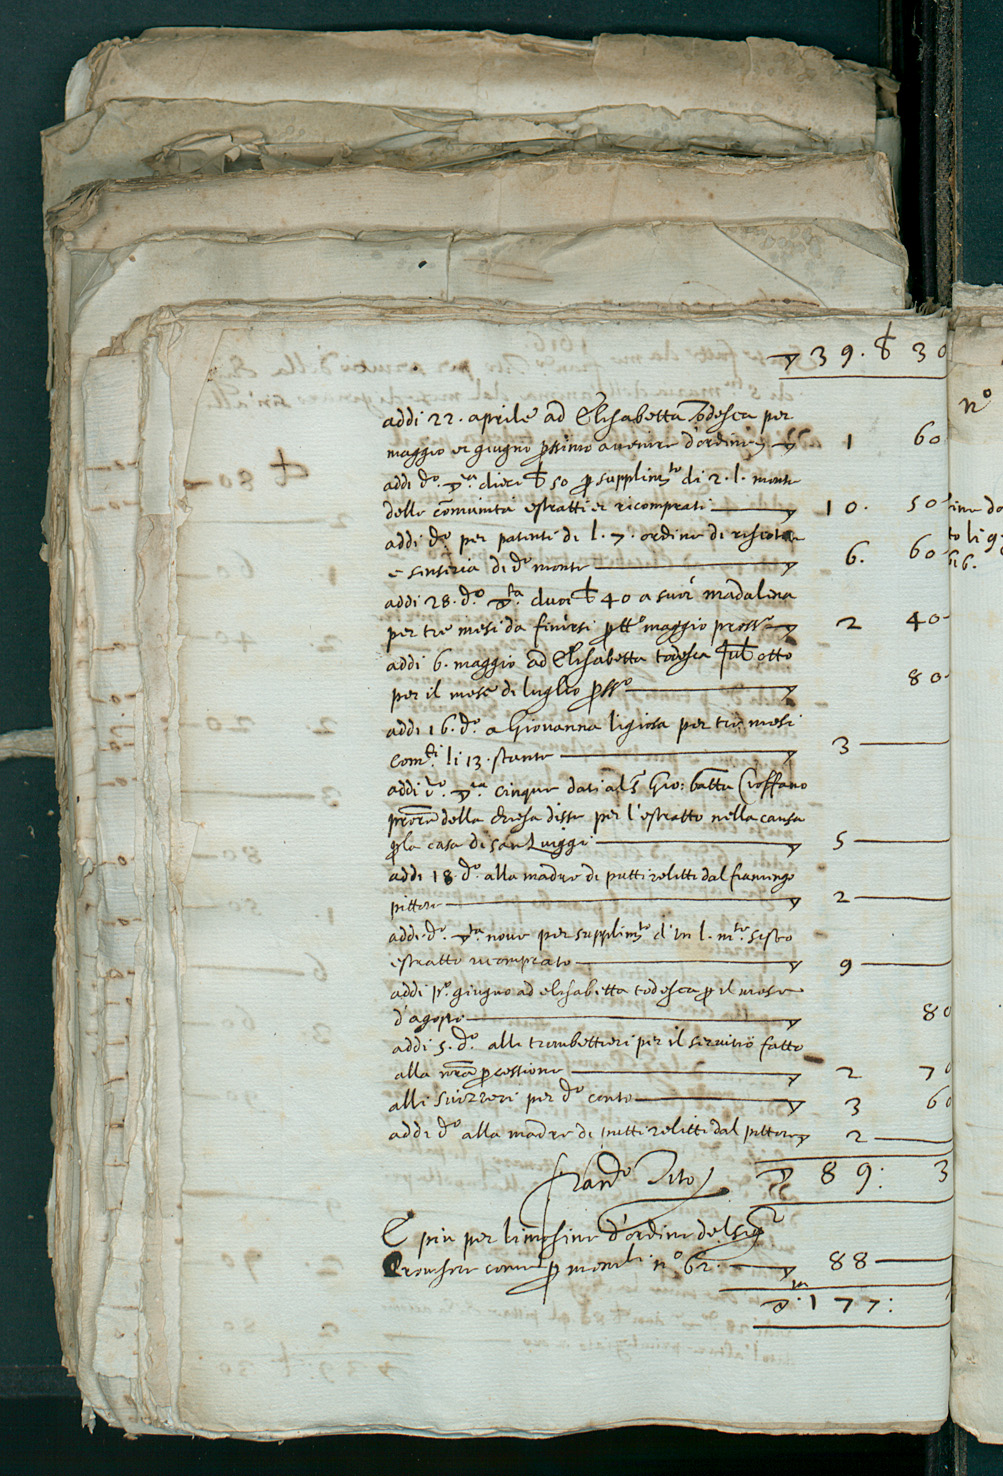 ▽ 39. ₺ 30
addi 22. aprile ad Elisabetta Todesca per
maggio et giugno pssimo avenire d'ordine ▽ 1 60
addi do. ▽ta dieci ₺ 50 p supplimto di 2. l. monte
delle comunità estratti et ricomprati — ▽ 10. 50
addi do per patenti di l. 7. ordine di
e senseria di do monte — ▽ 6. 60
addi 28. do ▽ta duoi ₺ 40 a suor madalena
per tre mesi da finirsi p tto maggio pross° ▽ 2 40
addi 6. maggio ad Elisabetta todesca otto
per il mese di luglio psso — ▽ 80
addi 16. do a Giovanna ligiosa per tre mesi
comdi li 13. stante — ▽ 3 —
addi do ▽ta cinque dati al s Gio: batta Cioffano
procre della chiesa disse per l'estratto nella causa
p la casa di san Luiggi — ▽ 5 —
addi 18 do. alla madre di putti relitti dal fiamingo
pittore — ▽ 2 —
addi do. ▽ta nove per supplimto d'un l. mte sisto
estratto ricomprato — ▽ 9 —
addi po. giugno ad elisabetta todesca p il mese
d'agosto — ▽ 80
addi 5. do. alli trombettieri per il servitio fatto
alla nra pcessione — ▽ 2 70
alli svizzeri per do conto — ▽ 3 60
addi do alla madre di putti relitti dal pittore ▽ 2 —
franco Tito ▽ 89: 3
E piu per limosine d'ordine del sigr
come p mandti no 62. — ▽ 88 —
▽ta: 177:
no